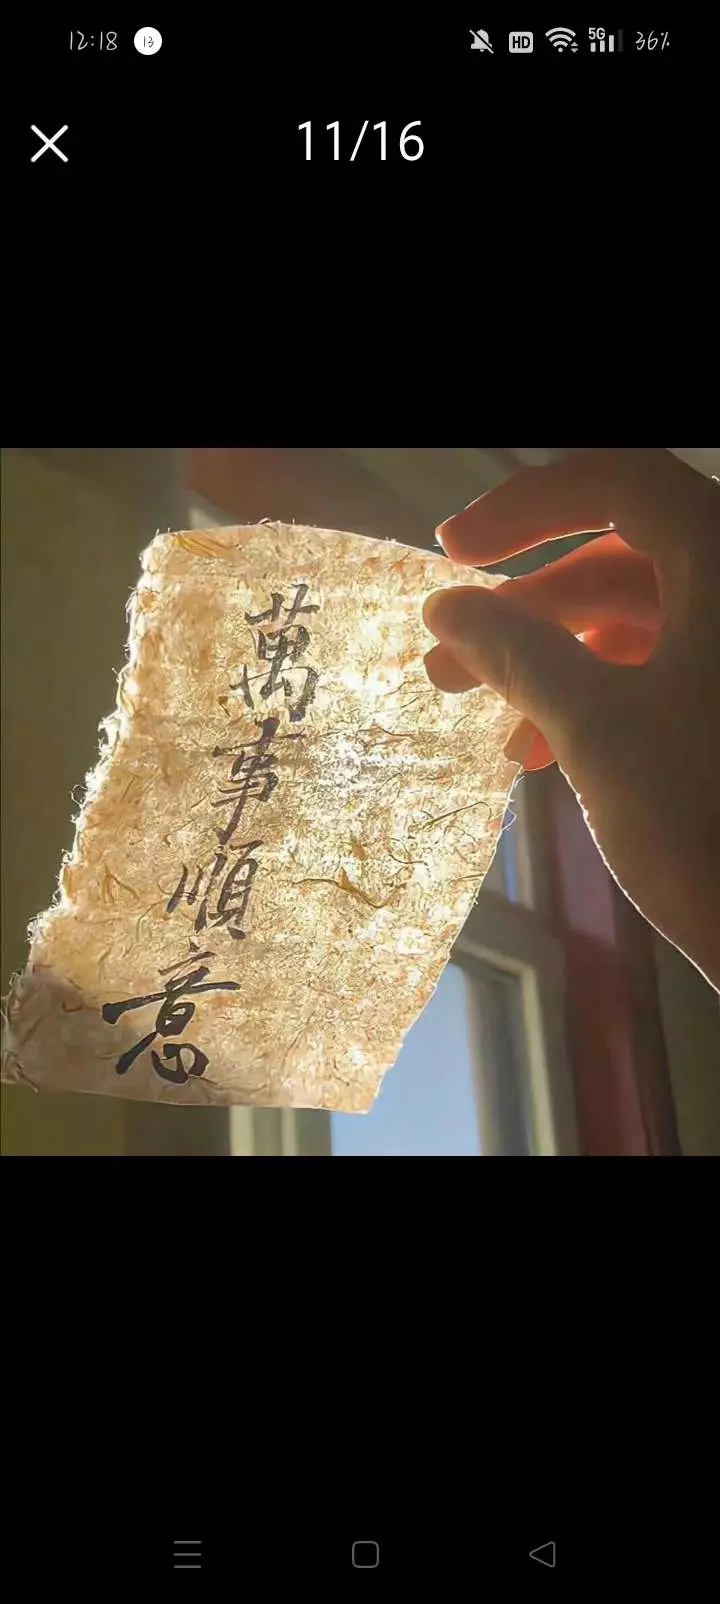 12:18 13 HD 5G 36%
11/16
萬事順意